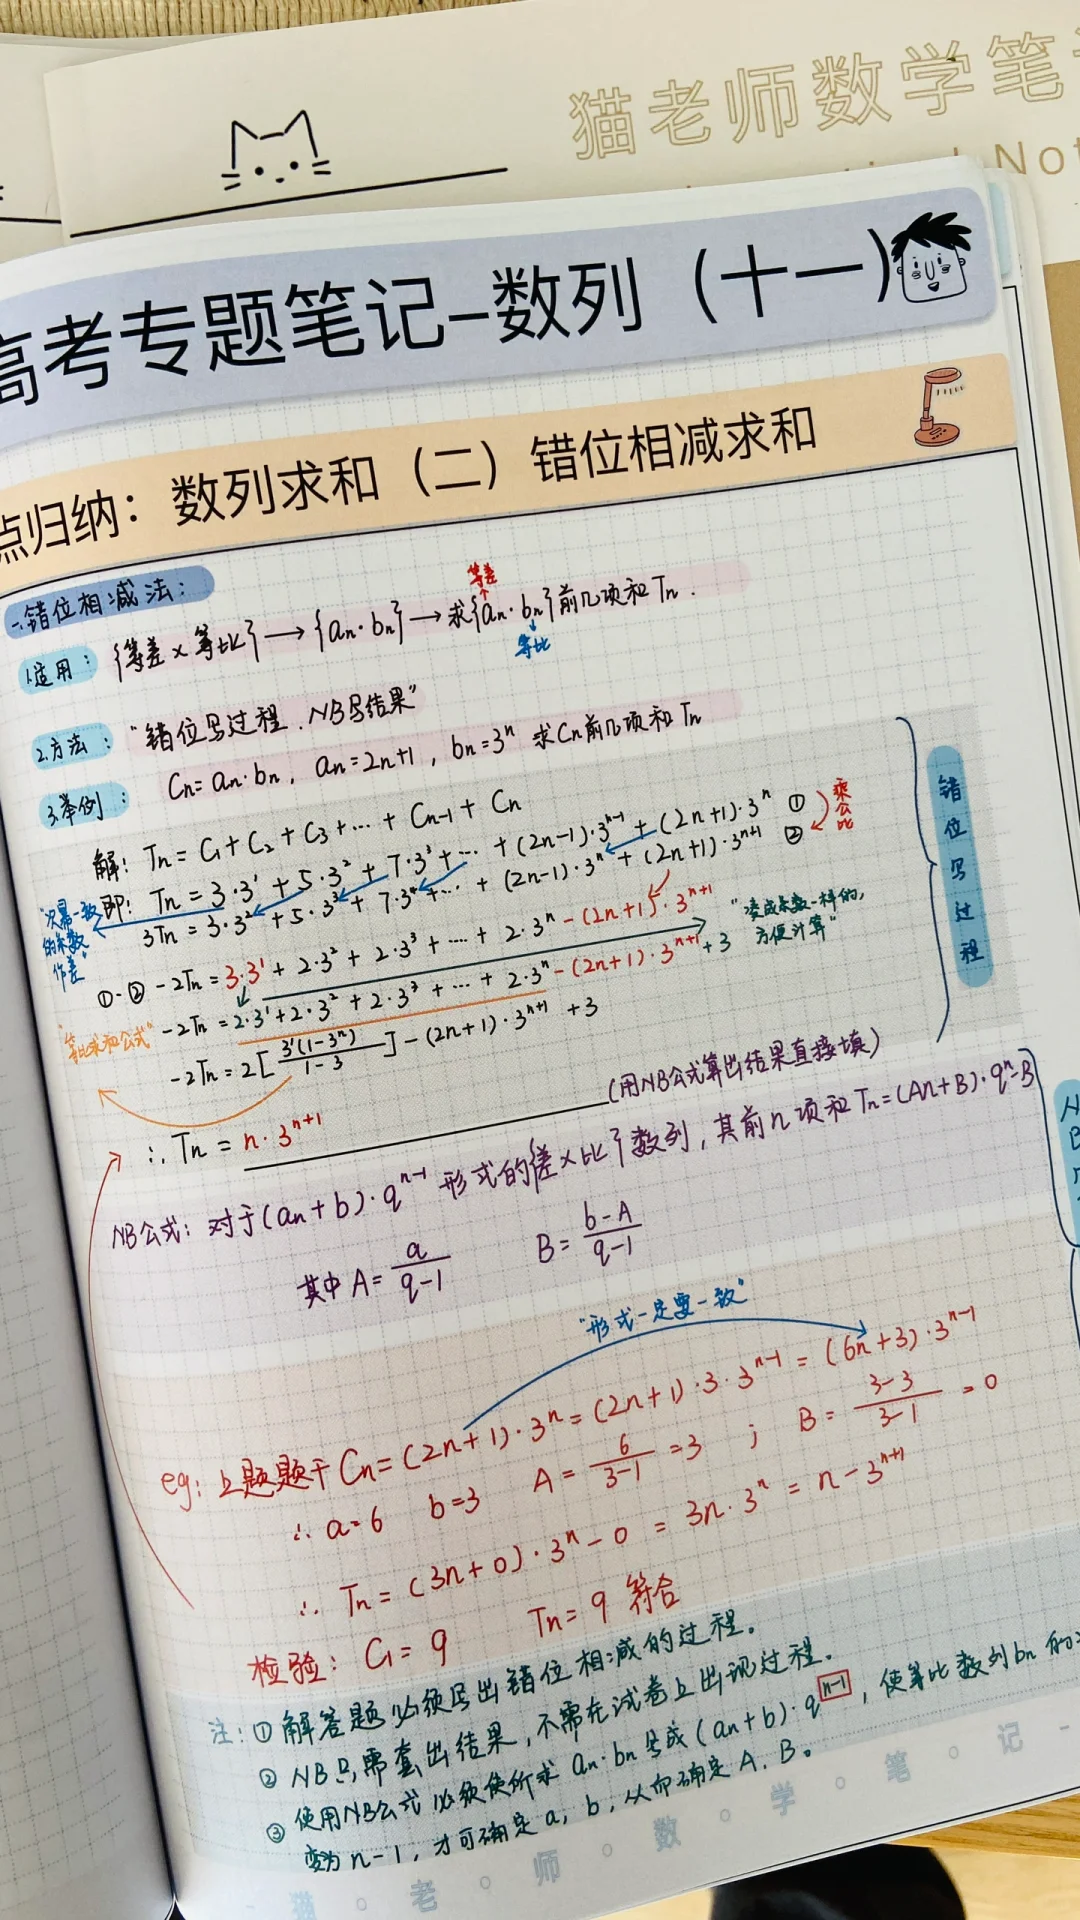 猫老师数学笔
Not
高考专题笔记-数列（十一）
点归纳：数列求和（二）错位相减求和
一.错位相减法：
等差
1.适用： {等差×等比} → {an·bn} → 求{an·bn}前n项和Tn.
等比
2.方法： "错位写过程.NB写结果"
3.举例： Cn=an·bn, an=2n+1, bn=3^n 求Cn前n项和Tn
解: Tn = C1+C2+C3+…+Cn-1+Cn
即: Tn = 3·3^1+5·3^2+7·3^3+…+(2n-1)·3^{n-1}+(2n+1)·3^n ①
乘公比
3Tn = 3·3^2+5·3^3+7·3^4+…+(2n-1)·3^n+(2n+1)·3^{n+1} ②
"次幂一致的系数作差"
①-② -2Tn = 3·3^1+2·3^2+2·3^3+…+2·3^n-(2n+1)·3^{n+1}
"凑成系数一样的,方便计算"
-2Tn = 2·3^1+2·3^2+2·3^3+…+2·3^n-(2n+1)·3^{n+1}+3
"等比求和公式"
-2Tn = 2[3^1(1-3^n)/1-3]-(2n+1)·3^{n+1}+3
错位写过程
∴Tn = n·3^{n+1} (用NB公式算出结果直接填)
NB公式: 对于(an+b)·q^{n-1}形式的{差×比}数列,其前n项和Tn=(An+B)·q^n-B
其中A=a/q-1 B=b-A/q-1
NB
"形式一定要一致"
eg: 上题题干Cn=(2n+1)·3^n=(2n+1)·3·3^{n-1}=(6n+3)·3^{n-1}
∴a=6 b=3 A=6/3-1=3 ; B=3-3/3-1=0
∴Tn=(3n+0)·3^n-0=3n·3^n=n-3^{n+1}
检验: C1=9 Tn=9 符合
注:①解答题必须写出错位相减的过程。
②NB只需套出结果,不需在试卷上出现过程.
③使用NB公式必须使所求an·bn写成(an+b)·q^{n-1},使等比数列bn的
变为n-1,才可确定a,b,从而确定A.B。
猫。老。师。数。学。笔。记